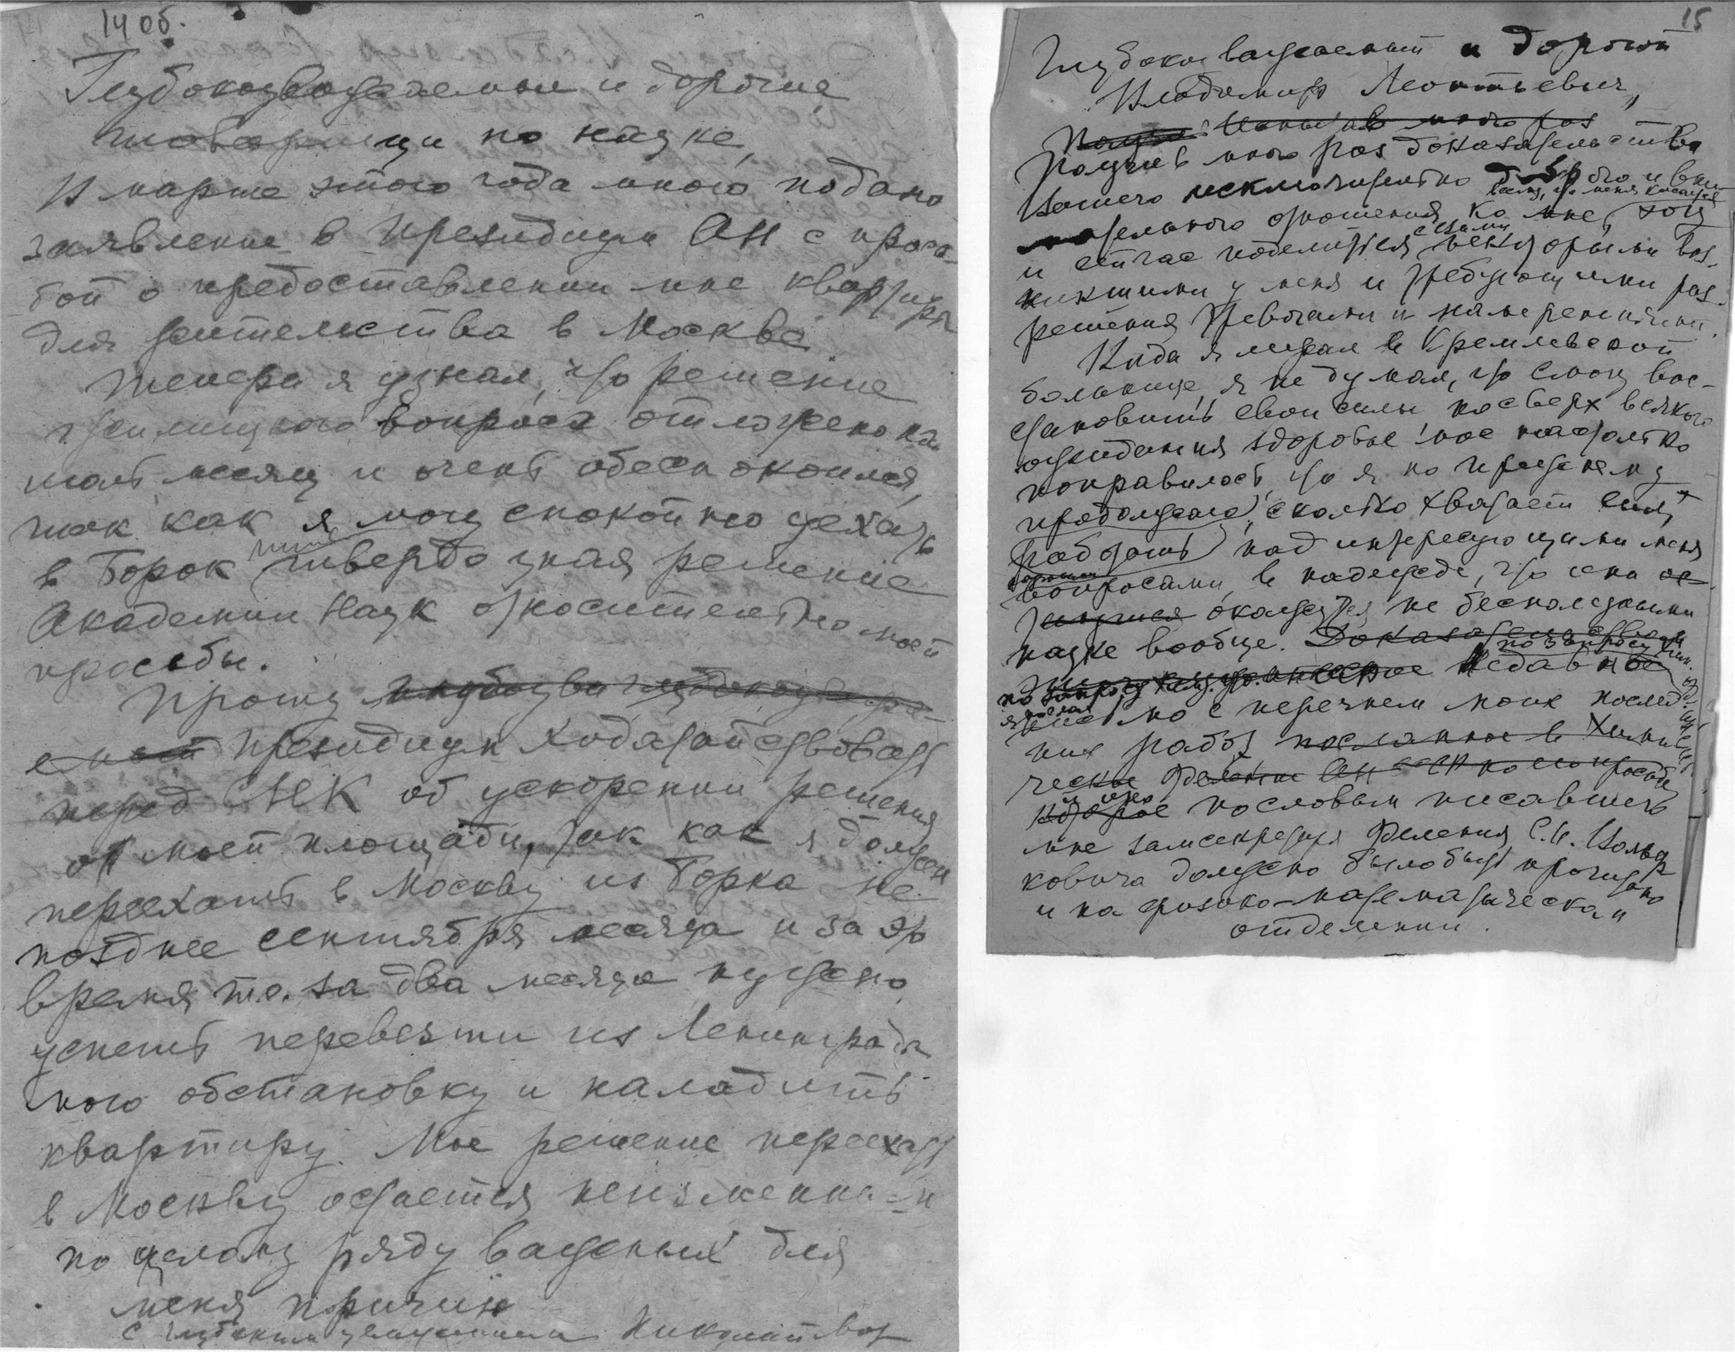 14 об.
Глубокоуважаемые и дорогие
товарищи по науке,
В марте этого года мною подано
заявление в Президиум АН с прось-
бой о предоставлении мне квартиры
для жительства в Москве.
Теперь я узнал, что решение
жилищного вопроса отложено на
месяц и очень обеспокоился,
так как я могу спокойно уехать
в Борок лишь твердо зная решение
Академии Наук относительно моей
просьбы.
Прошу
Президиум ходатайствовать
перед СНК об ускорении решения
о моей площади, так как я должен
переехать в Москву из Борка не
позднее сентября месяца и за это
время т.е. за два месяца нужно
успеть перевезти из Ленинграда
мою обстановку и наладить
квартиру. Мое решение переехать
в Москву остается неизменным
по целому ряду важных для
меня причин
С глубоким уважением Николай Мор
15
Глубокоуважаемый и дорогой
Владимир Леонтьевич,
много раз
получив много раз доказательства
Вашего исключительно доброго и вни-
всему, что меня касается
мательного отношения ко мне, хочу
с Вами
и сейчас поделиться некоторыми воз-
никшими у меня и требующими раз-
решения тревогами и намерениями.
Когда я лежал в Кремлевской
больнице, я не думал, что смогу вос-
становить свои силы но сверх всякого
ожидания здоровье мое настолько
поправилось, что я по прежнему
продолжаю, сколько хватает сил,
работать над интересующими меня
вопросами, в надежде, что они
окажутся не бесполезными
науке вообще.
по запросу Хим.
недавно
я послал
письмо с перечнем моих послед-
них работ посланное в Хими-
ческое Отделение АН по его просьбе
которое по словам писавшего
мне замсекретаря Отделения С.И. Вольф-
ковича должно было быть прочитано
и на физико-математическом
отделении.